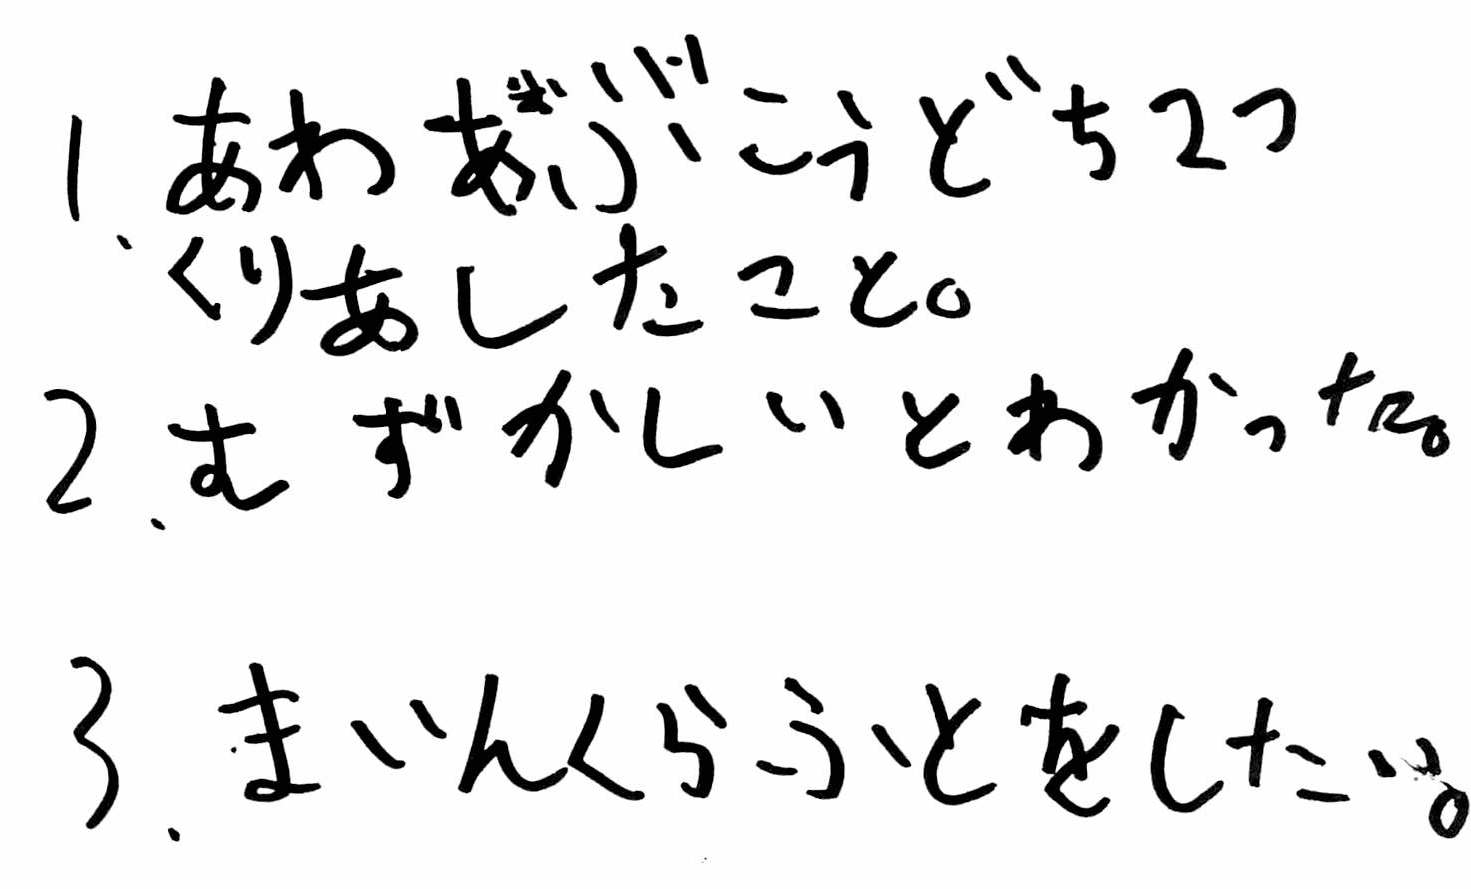 1、あわあぶこうどち2つ
くりあしたこと。
2、むずかしいとわかった。
3、まいんくらふとをしたい。